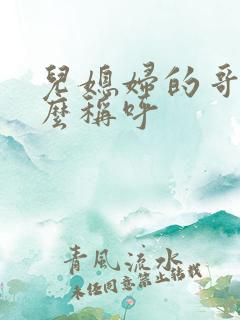 兒媳婦的哥
麼稱呼
青風流水
未經同意禁止轉載